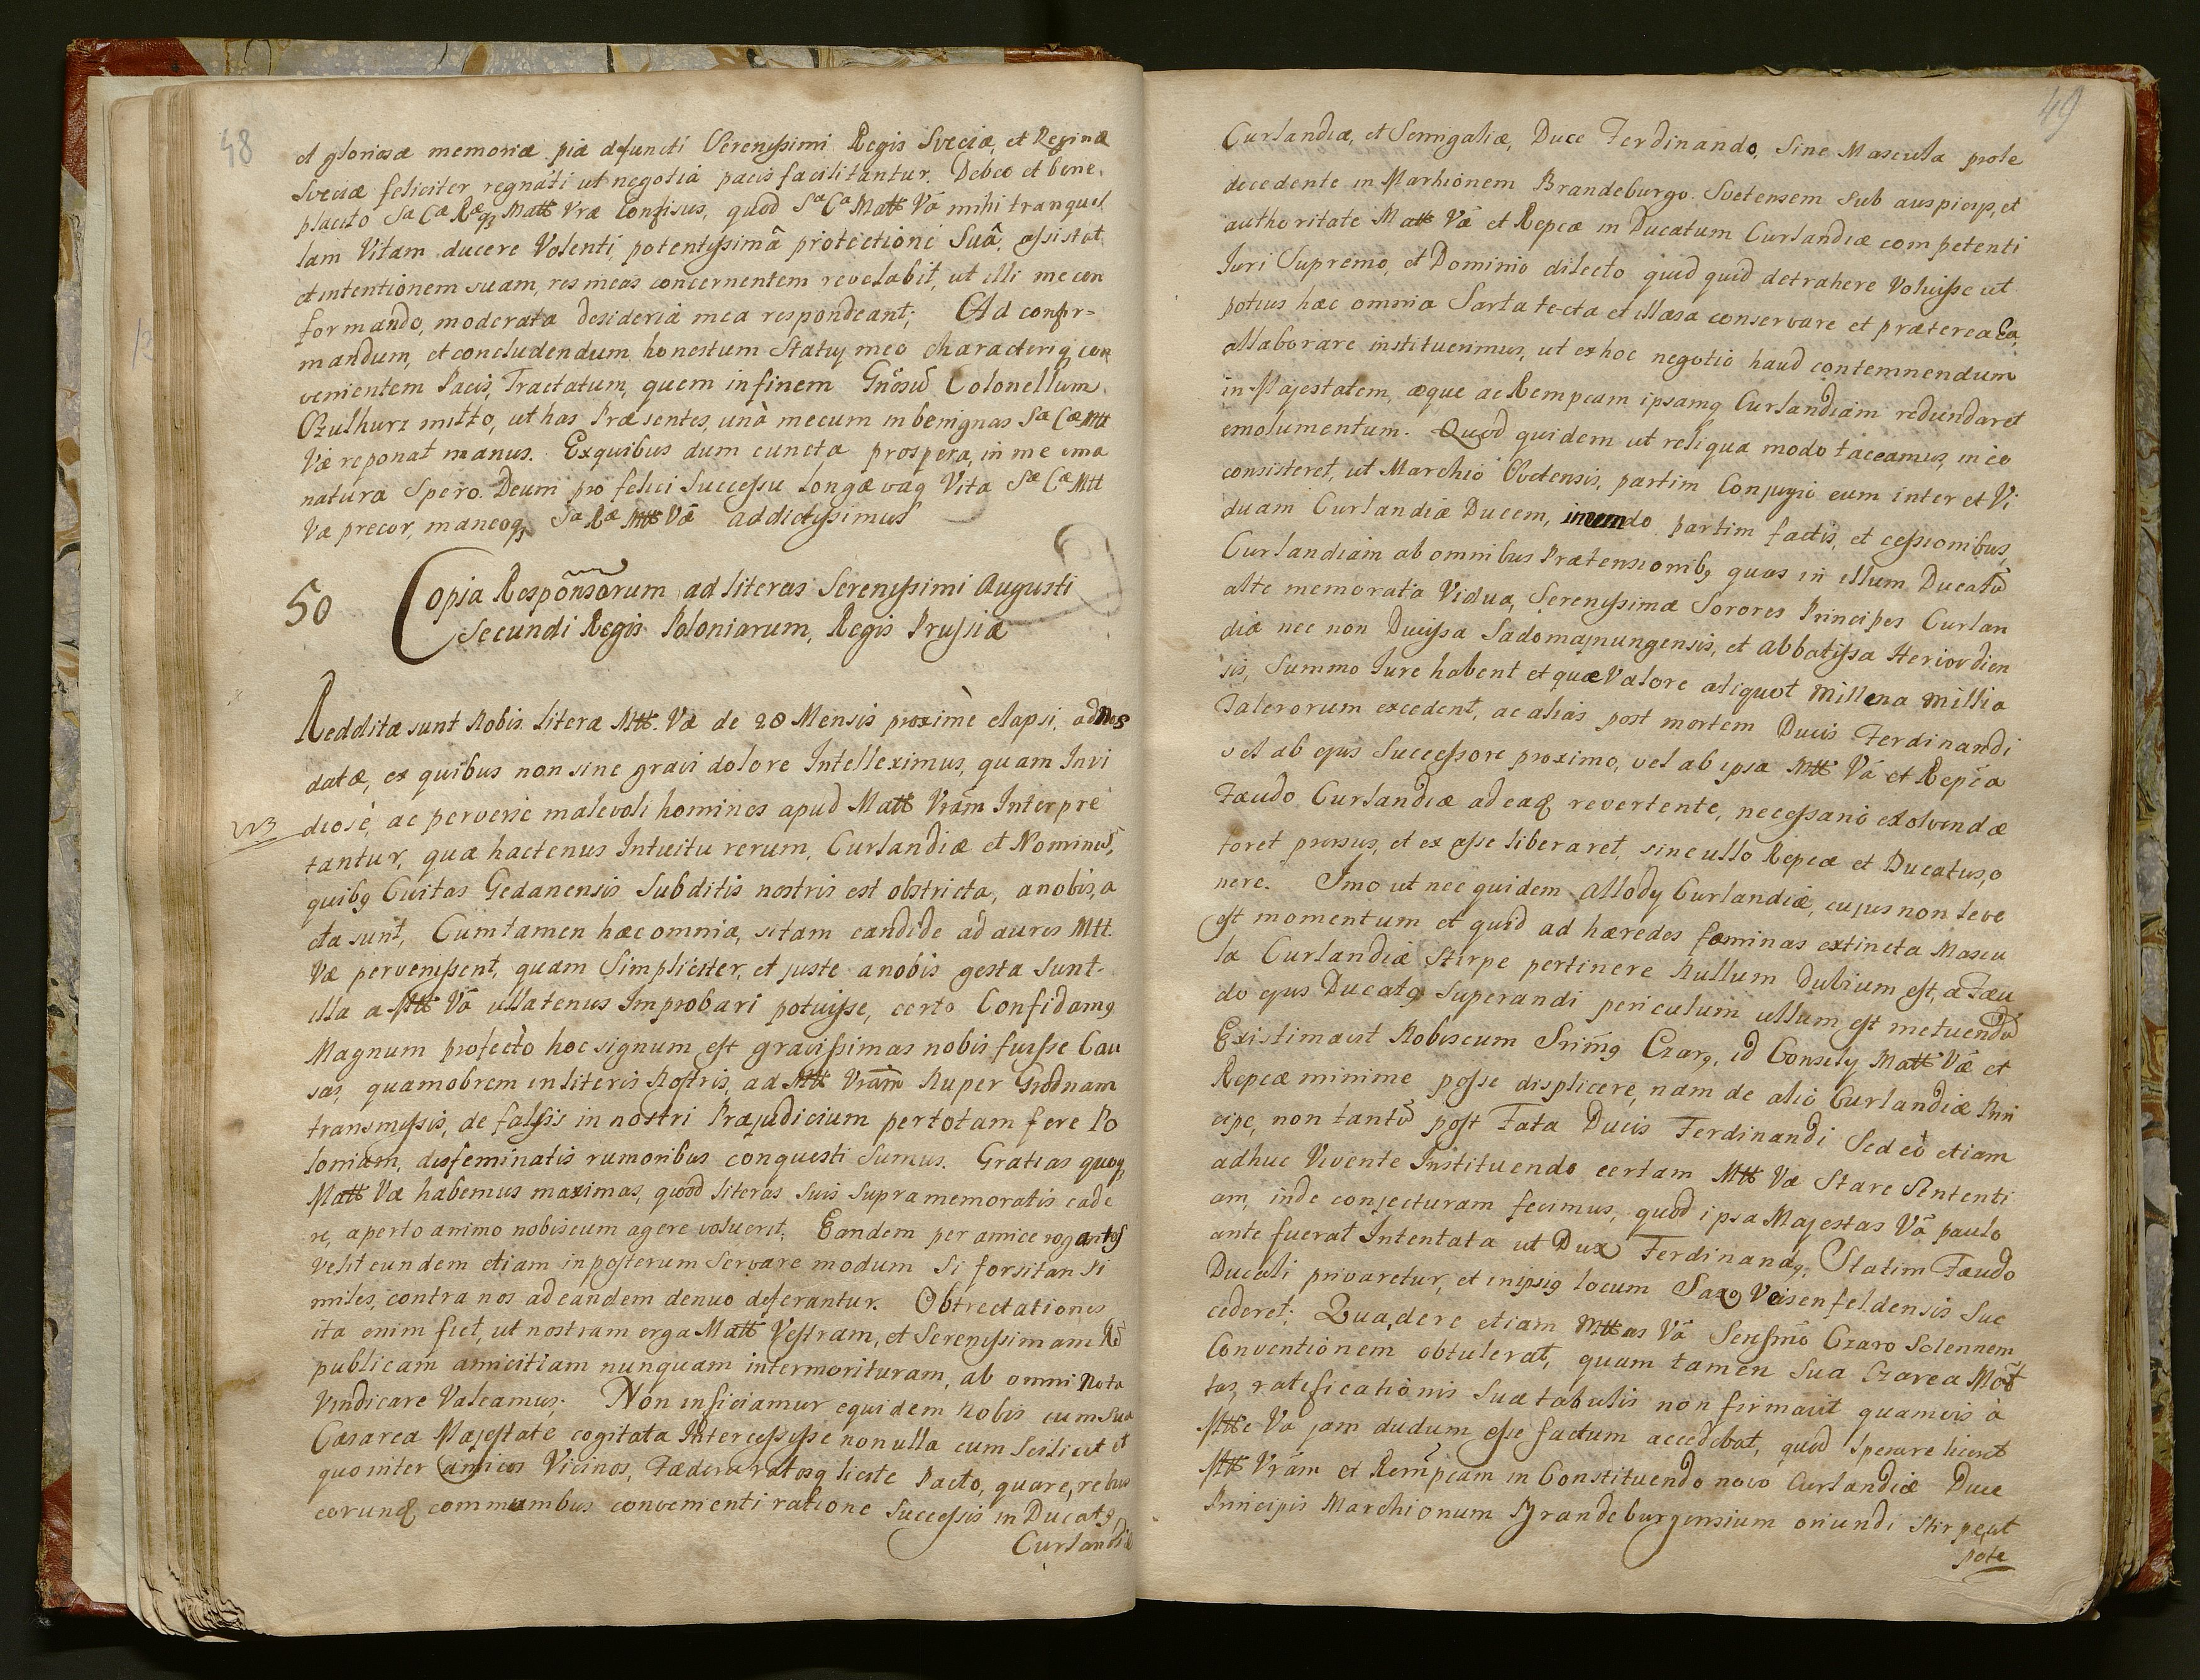 48
et gloriosæ memoriæ piæ defuncti Serenissimi Regis Sveciæ, et Reginæ
Sveciæ feliciter regnāti ut negotia pacis facilitantur. Debeo et bene
placito Sæ Cæ Ræq Matt Vræ Confisus, quod Sa Ca Matt Vā mihi tranquil
lam Vitam ducere Volenti, potentissimâ protectione Suâ, assistat
et intentionem suam, res meas concernentem revelabit, ut illi me con
formando, moderata desideria mea respondeant; Ad confir=
mandum, et concludendum honestum Statuj meo characteriq con
venientem Pacis, Tractatum, quem in finem Gnōsū Colonellum
Czulhurz mitto, ut has Præsentes, unà mecum in benignas Sæ Cæ Mtt
Væ reponat manus. Ex quibus dum cuncta prospera, in me ema
natura Spero. Deum pro felici Successu longævaq Vita Sæ Cæ Mtt
Væ precor, maneoq Sæ Ræ Mtt Vā addictissimus
50
Copia Responsorum ad literas Serenissimi Augusti
Secundi Regis Poloniarum, Regis Prussiæ
Redditæ sunt Nobis literæ Mtt. Væ de 28 Mensis proximè elapsi, ad nos
datæ, ex quibus non sine gravi dolore Intelleximus, quam Invi
diosè, ac perverse malevoli homines apud Matt Vrām Interpre
tantur, quæ hactenus Intuitu rerum, Curlandiæ et Nominūs,
quibq Civitas Gedanensis Subditis nostris est obstricta, a nobis, a
cta sunt, Cum tamen hæc omnia, si tam candide ad aures Mtt.
Væ pervenissent, quam Simpliciter, et juste a nobis gesta sunt.
illa a Mtt Vā ullatenus Improbari potuisse, certo Confidamq
Magnum profecto hoc signum est gravissimas nobis fuisse Cau
sas, quamobrem in literis Nostris, ad Mtt Vrām Nuper Grodnam
transmissis, de falsis in nostri Præjudicium per totam fere Po
loniam, disseminatis rumoribus conquesti Sumus. Gratias quoq
Matt Væ habemus maximas, quod literas suis supra memoratis cade
re, aperto animo nobiscum agere voluerit. Eandem per amice rogantes
velit eundem etiam in posterum Servare modum Si forsitan Si
miles, contra nos ad eandem denuo deferantur. Obtrectationes
ita enim fiet, ut nostram erga Matt Vestram, et Serenissimam Rē
publicam amicitiam nunquam intermorituram, ab omni Nota
Vindicare Valeamus. Non inficiamur equidem Nobis cum Sua
Cæsarea Majestate cogitata Intercessisse nonulla cum Scilicet et
quo inter amicos Vicinos, Fæderatosq liceste Pacto, quare, rebus
eorunq communibus convenienti ratione Successis in Ducatq
Curlandiæ
49
Curlandiæ, et Semigaliæ, Duce Ferdinando, Sine Mascula prole
decedente in Marhionem Brandeburgo Svetensem Sub auspicys, et
authoritate Matt Vā et Repcæ in Ducatum Curlandiæ competenti
Iuri Supremo, et Dominio dilecto quid quid detrahere Voluisse ut
potius hæc omnia Sarta tecta et illæsa conservare et præterea Ea
allaborare instituerimus, ut ex hoc negotio haud contemnendum
in Majestatem, æque ac Rempcam ipsamq Curlandiam redundaret
emolumentum. Quod quidem ut reliqua modo taceamus, in eo
consisteret, ut Marchio Svetensis, partim Conjugio eum inter et Vi
duam Curlandiæ Ducem, ineundo partim factis, et cessionibus,
Curlandiam ab omnibus Prætensionibq quas in illum Ducatū
alte memorata Vidua, Serenissimæ Sorores Principes Curlan
diæ nec non Ducissa Sadomajnungensis, et abbatissa Heriordien
sis, Summo Iure habent et quæ Valore aliquot Millena Millia
Talerorum excedent, ac aliàs post mortem Ducis Ferdinandi
vel ab ejus Successore proximo, vel ab ipsa Mtt Vā et Repca
Fæudo Curlandiæ ad eaq revertente, necessariò exolvendæ
foret prorsus, et ex asse liberaret, sine ullo Repcæ et Ducatus, o
nere. Imo ut nec quidem allody Curlandiæ, cujus non leve
est momentum et quid ad hæredes fæminas extincta Mascu
la Curlandiæ Stirpe pertinere Nullum Dubium est, a Fæu
do ejus Ducatq Superandi periculum ullum est metuendū
Existimavit Nobiscum Srimq Czarq, id Consily Matt Væ et
Repcæ minime posse displicere, nam de alio Curlandiæ Prin
cipe, non tantū post Fata Ducis Ferdinandi Sed eò etiam
adhuc Vivente Instituendo certam Mtt Væ Stare Sententi
am, inde conjecturam fecimus, quod ipsa Majestas Vā paulo
ante fuerat Intentata ut Dux Ferdinandq, Statim Fæudo
Ducali privaretur, et in ipsiq locum Saxo Veisenfeldensis Suc
cederet; Qua de re etiam Mttas Vā Serissmō Czaro Solennem
Conventionem obtulerat, quam tamen Sua Czarea Mat
tas, ratificationis Suæ tabulis non firmavit quamvis à
Mtte Vā jam dudum esse factum accedebat, quod Sperare liceret
Mtt Vrām et Rempcam in Constituendo novo Curlandiæ Duce
Principis Marchionum Brandeburgensium oriundi Stirpe, ut
pote